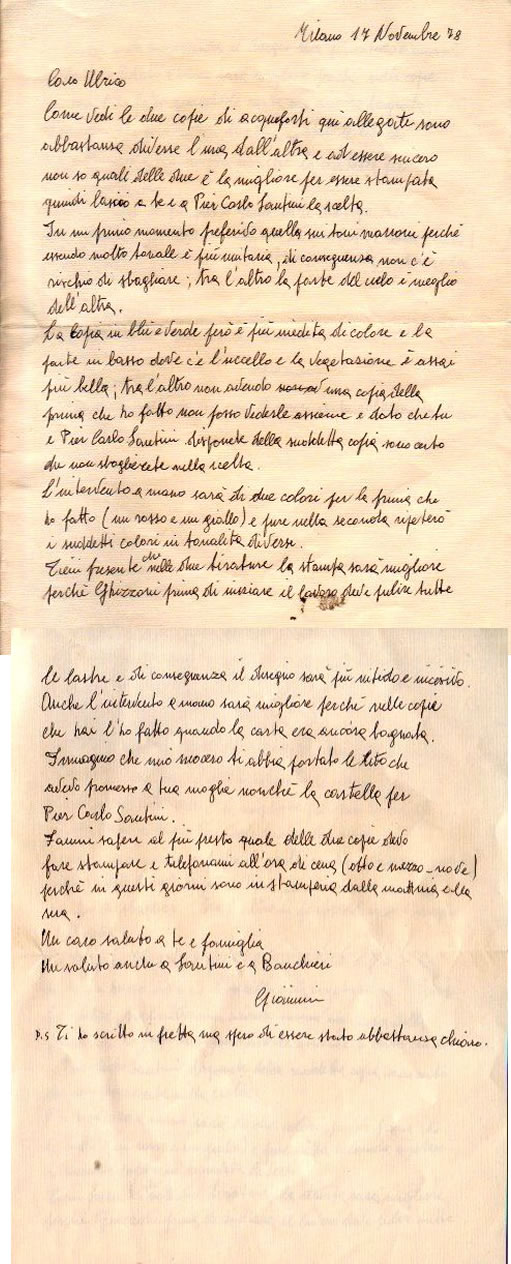 Milano 17 Novembre 78
Caro Ulrico
Come vedi le due copie di acqueforti qui allegate sono
abbastanza diverse l'una dall'altra e ad essere sincero
non so quale delle due è la migliore per essere stampata
quindi lascio a te e a Pier Carlo Santini la scelta.
In un primo momento preferivo quella sui toni marroni perché
essendo molto tonale è più unitaria, di conseguenza non c'è
rischio di sbagliare; tra l'altro la parte del cielo è meglio
dell'altra.
La copia in blu e verde però è più inedita di colore e la
parte in basso dove c'è l'uccello e la vegetazione è assai
più bella; tra l'altro non avendo una copia della
prima che ho fatto non posso vederle assieme e dato che tu
e Pier Carlo Santini disponete della suddetta copia sono certo
che non sbaglierete nella scelta.
L'intervento a mano sarà di due colori per la prima che
ho fatto (un rosso e un giallo) e pure nella seconda ripeterò
i suddetti colori in tonalità diverse.
Tieni presente che nelle due tirature la stampa sarà migliore
perché Ghizzoni prima di iniziare il lavoro deve pulire tutte
le lastre e di conseguenza il disegno sarà più nitido e incisivo.
Anche l'intervento a mano sarà migliore perché nelle copie
che hai l'ho fatto quando la carta era ancora bagnata.
Immagino che mio suocero ti abbia portato le lito che
avevo promesso a tua moglie nonché la cartella per
Pier Carlo Santini.
Fammi sapere al più presto quale delle due copie devo
fare stampare e telefonami all'ora di cena (otto e mezzo - nove)
perché in questi giorni sono in stamperia dalla mattina alla
sera.
Un caro saluto a te e famiglia
Un saluto anche a Santini e a Banchieri
Giannini
P.S Ti ho scritto in fretta ma spero di essere stato abbastanza chiaro.